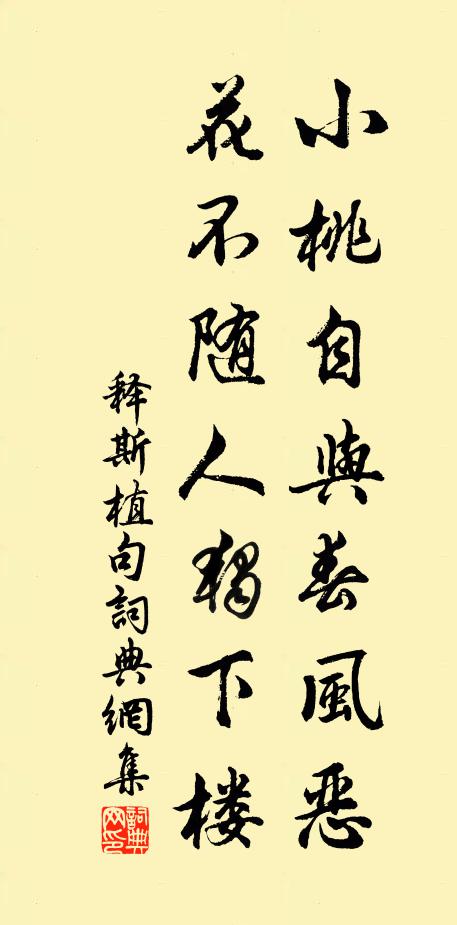 小桃自與春風惡
花不随人獨下楼
释斯植句詞典網集
詞典網印